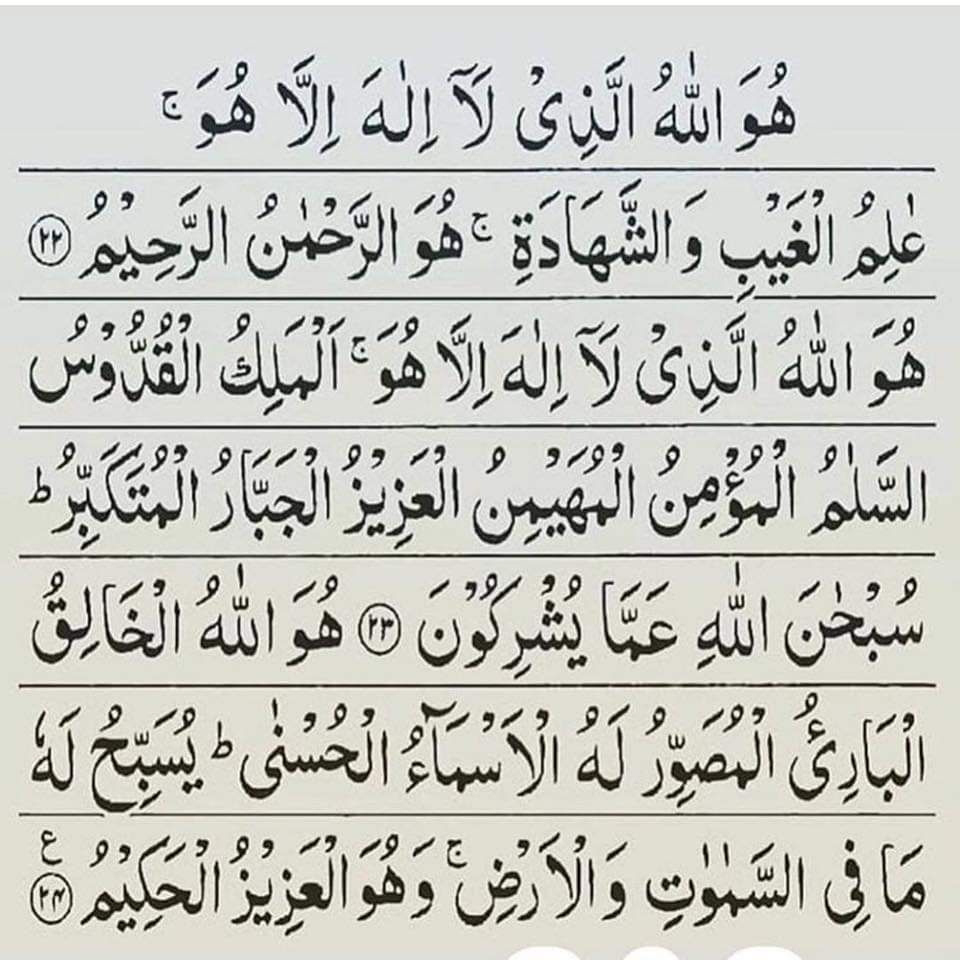 هُوَ اللّٰهُ الَّذِیْ لَاۤ اِلٰهَ اِلَّا هُوَ ۚ
عٰلِمُ الْغَیْبِ وَ الشَّهَادَةِ ۚ هُوَ الرَّحْمٰنُ الرَّحِیْمُ ﴿۲۲﴾
هُوَ اللّٰهُ الَّذِیْ لَاۤ اِلٰهَ اِلَّا هُوَ ۚ اَلْمَلِكُ الْقُدُّوْسُ
السَّلٰمُ الْمُؤْمِنُ الْمُهَیْمِنُ الْعَزِیْزُ الْجَبَّارُ الْمُتَكَبِّرُ ؕ
سُبْحٰنَ اللّٰهِ عَمَّا یُشْرِكُوْنَ ﴿۲۳﴾ هُوَ اللّٰهُ الْخَالِقُ
الْبَارِئُ الْمُصَوِّرُ لَهُ الْاَسْمَآءُ الْحُسْنٰی ؕ یُسَبِّحُ لَهٗ
مَا فِی السَّمٰوٰتِ وَ الْاَرْضِ ۚ وَ هُوَ الْعَزِیْزُ الْحَكِیْمُ ﴿۲۴﴾ ع